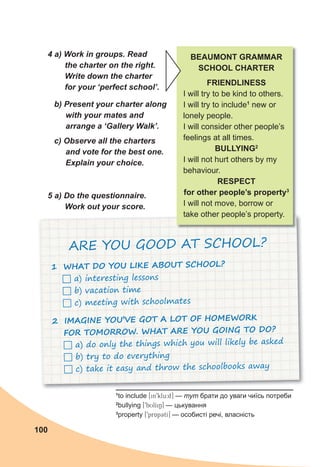 4 a) Work in groups. Read
the charter on the right.
Write down the charter
for your ‘perfect school’.
b) Present your charter along
with your mates and
arrange a ‘Gallery Walk’.
c) Observe all the charters
and vote for the best one.
Explain your choice.
5 a) Do the questionnaire.
Work out your score.
BEAUMONT GRAMMAR
SCHOOL CHARTER
FRIENDLINESS
I will try to be kind to others.
I will try to include¹ new or
lonely people.
I will consider other people’s
feelings at all times.
BULLYING²
I will not hurt others by my
behaviour.
RESPECT
for other people’s property³
I will not move, borrow or
take other people’s property.
ARE YOU GOOD AT SCHOOL?
1 WHAT DO YOU LIKE ABOUT SCHOOL?
a) interesting lessons
b) vacation time
c) meeting with schoolmates
2 IMAGINE YOU’VE GOT A LOT OF HOMEWORK
FOR TOMORROW. WHAT ARE YOU GOING TO DO?
a) do only the things which you will likely be asked
b) try to do everything
c) take it easy and throw the schoolbooks away
¹to include [ɪn'kluːd] — тут брати до уваги чиїсь потреби
²bullying ['bʊliɪŋ] — цькування
³property ['prɒpəti] — особисті речі, власність
100